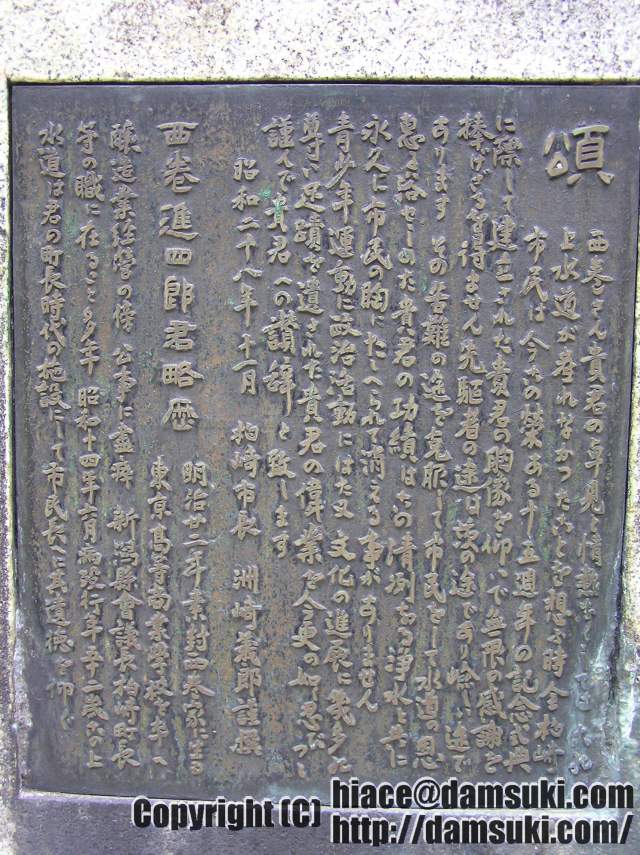 頌
西巻さん貴君の卓見と情熱
上水道が産れなかつたことを想ふ時全柏崎
市民は今この栄ある十五週年の記念式典
に際して建立された貴君の胸像を仰いで無限の感謝を
捧げざるを得ません先駆者の途は茨の途であり嶮しい途で
あります その苦難の途を克服して市民をして水道の恩
恵に浴せしめた貴君の功績はこの清冽なる浄水と共に
永久に市民の胸にたゝへられて消える事がありません
青少年運動に政治活動にはた又文化の進展に幾多の
尊い足蹟を遺された貴君の偉業を今更の如く忍びつゝ
謹んで貴君への讃辞と致します
昭和二十八年十一月 柏崎市長 洲崎義郎謹撰
西巻進四郎君略歴
明治廿二年素封西巻家に生る
東京高等商業学校を卒へ
醸造業経営の傍 公事に盡瘁 新潟縣會議員柏崎町長
等の職に在ること多年 昭和十四年六月病歿行年五十一歳 この上
水道は君の町長時代の施設にして市民長へに其遺徳を仰ぐ
Copyright (C) hiace@damsuki.com
http://damsuki.com/